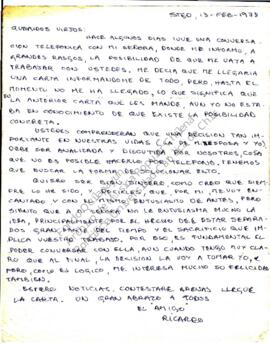 STGO, 13-FEB-1978
QUERIDOS VIEJOS:
HACE ALGUNOS DIAS TUVE UNA CONVERSA-
CION TELEFONICA CON MI SEÑORA, DONDE ME INFORMO, A
GRANDES RASGOS, LA POSIBILIDAD DE QUE ME VAYA A
TRABAJAR CON USTEDES, ME DECIA QUE ME LLEGARIA
UNA CARTA INFORMANDOME DE TODO, PERO, HASTA EL
MOMENTO NO ME HA LLEGADO, LO QUE SIGNIFICA QUE
LA ANTERIOR CARTA QUE LES MANDE, AUN YO NO ESTA-
BA EN CONOCIMIENTO DE QUE EXISTE LA POSIBILIDAD
CONCRETA.
USTEDES COMPRENDERAN QUE UNA DECISION TAN IM-
PORTANTE EN NUESTRAS VIDAS (LA DE MI ESPOSA Y YO)
DEBE SER ANALIZADA Y DISCUTIDA POR NOSOTROS, COSA
QUE NO ES POSIBLE HACERLO POR TELEFONO, TENEMOS
QUE BUSCAR LA FORMA DE SOLUCIONAR ELLO.
QUIERO SER BIEN SINCERO COMO CREO QUE SIEM-
PRE LO HE SIDO, Y DECIRLES QUE, POR MI, ME VOY EN-
CANTADO Y CON EL MISMO ENTUSIASMO DE ANTES, PERO
SIENTO QUE A LENOR NO LE ENTUSIASMA MUCHO LA
IDEA, PRINCIPALMENTE POR EL HECHO DEL ESTAR SEPARA-
DOS GRAN PARTE DEL TIEMPO Y EL SACRIFICIO QUE IM-
PLICA VUESTRO TRABAJO. POR ESO, ES FUNDAMENTAL EL
PODER CONVERSAR CON ELLA, AUN CUANDO TENGO MUY CLA-
RO QUE AL FINAL, LA DECISION LA VOY A TOMAR YO,
PERO, COMO ES LOGICO, ME INTERESA MUCHO SU FELICIDAD
TAMBIEN.
ESPERO NOTICIAS, CONTESTARE APENAS LLEGUE
LA CARTA. UN GRAN ABRAZO A TODOS
EL AMIGO
RICARDO